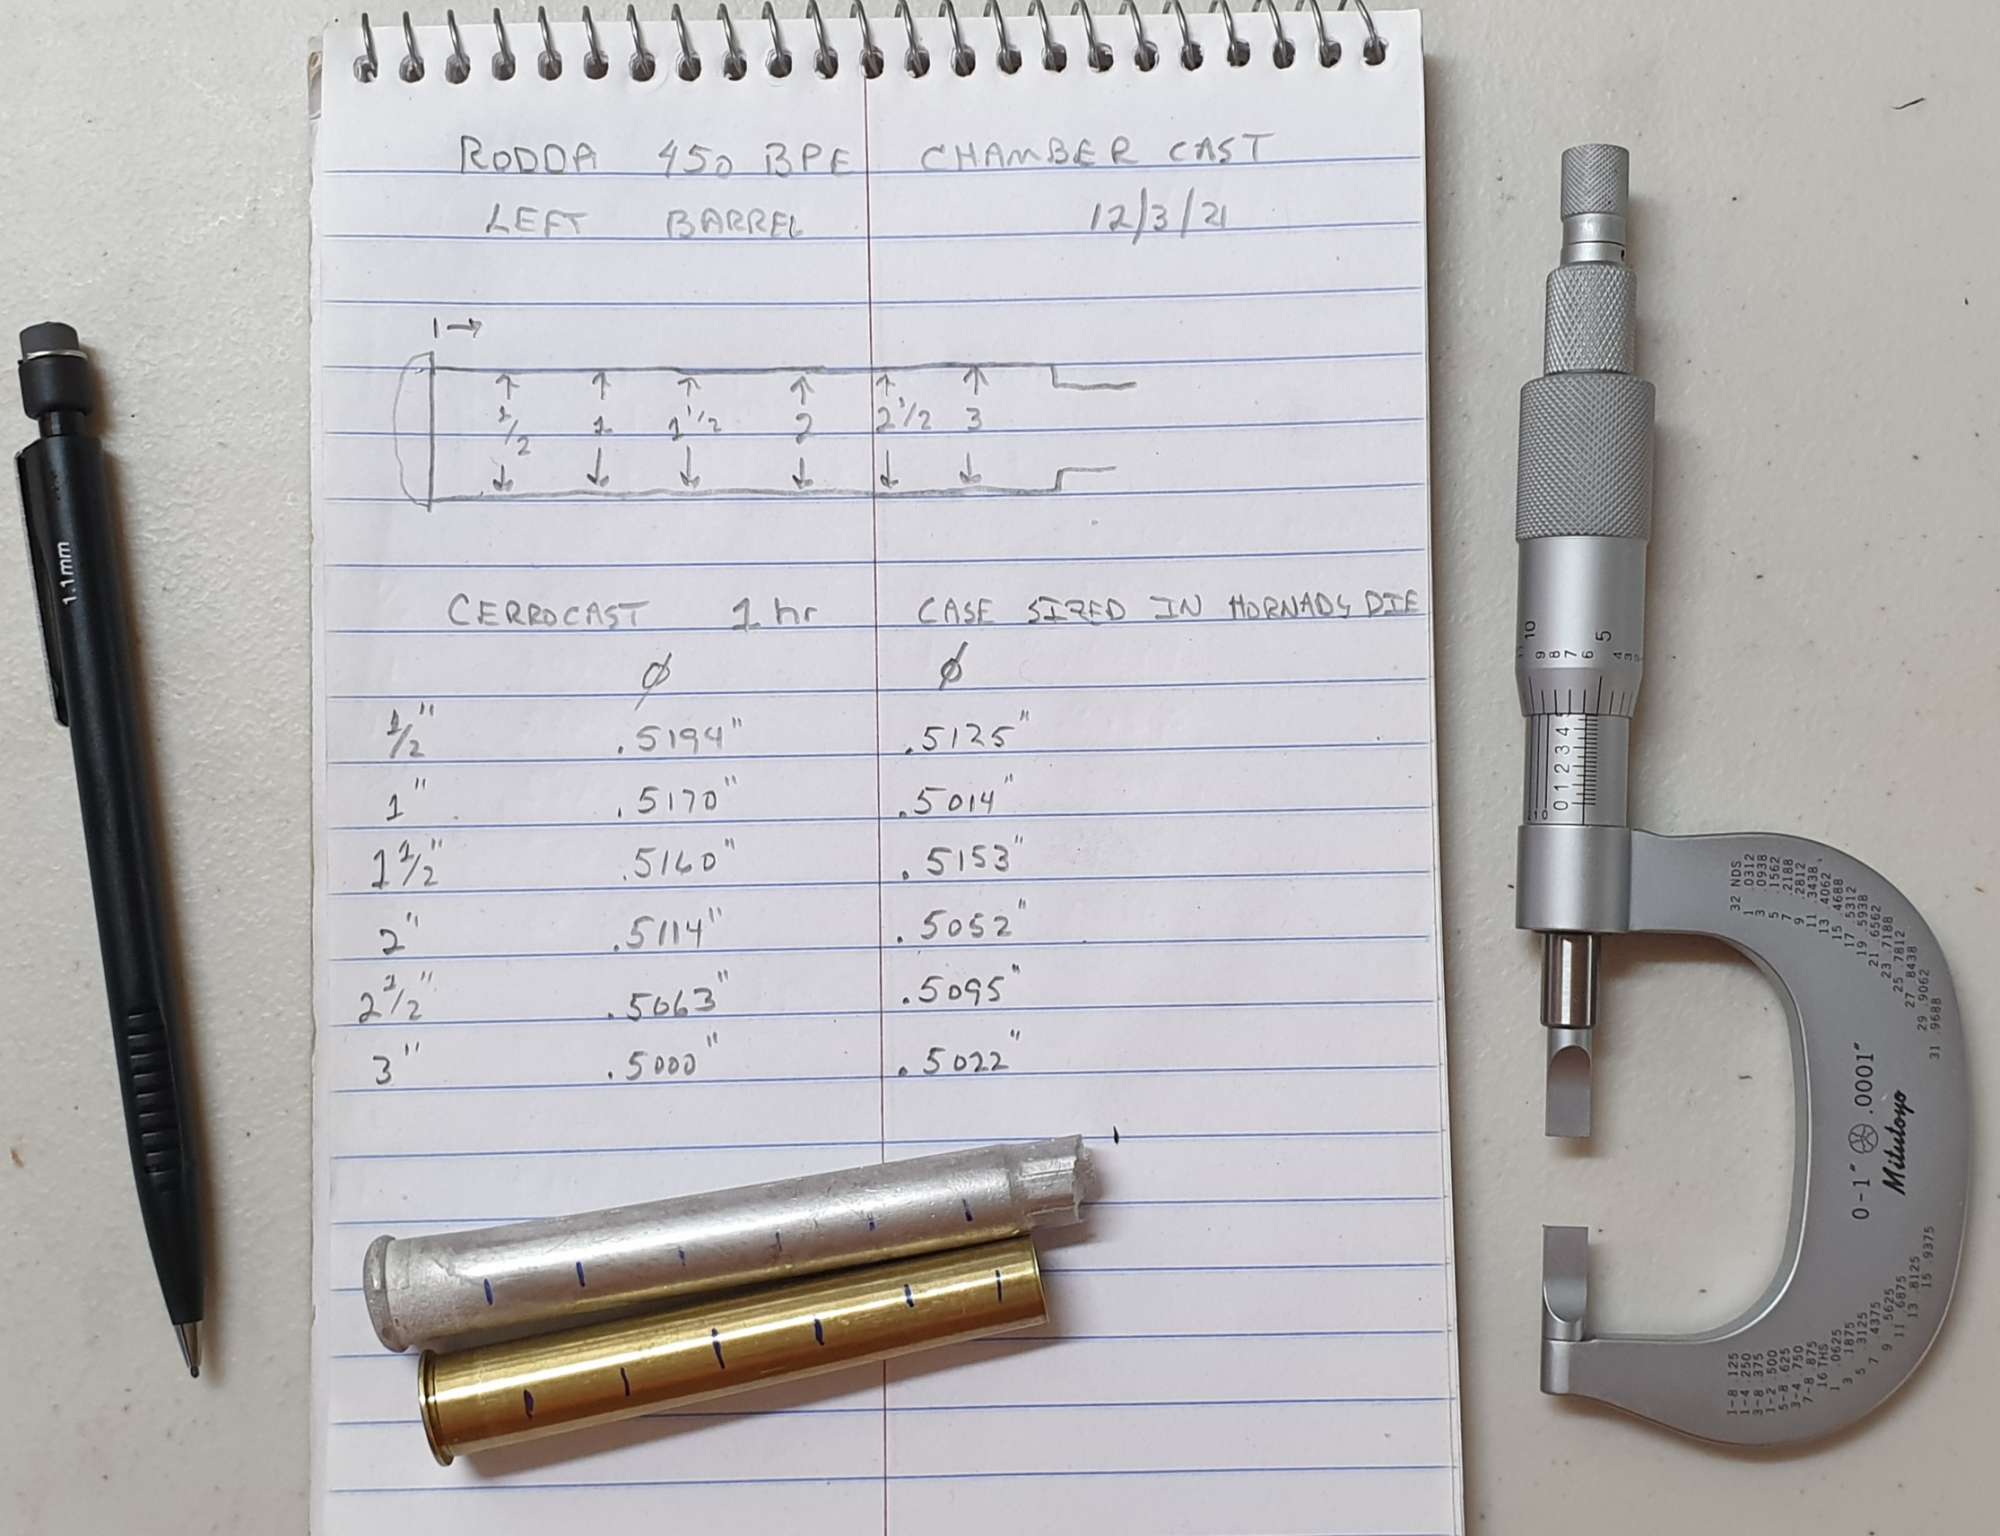 RODDA 450 BPE CHAMBER CAST
LEFT BARREL 12/3/21
1→
1/2 1 1 1/2 2 2 1/2 3
CERROCAST 1 hr CASE SIZED IN HORNADY DIE
ø ø
1/2" .5194" .5125"
1" .5170" .5014"
1 1/2" .5160" .5153"
2" .5114" .5052"
2 1/2" .5063" .5095"
3" .5000" .5022"
1.1mm
10 9 8 7 6 5 4 3
0 1 2 3 4
32 NDS
1 .0312
3 .0938
5 .1562
7 .2188
9 .2812
11 .3438
13 .4062
15 .4688
17 .5312
19 .5938
21 .6562
23 .7188
25 .7812
27 .8438
29 .9062
31 .9688
0-1" .0001"
Mitutoyo
1-8 .125
1-4 .250
3-8 .375
1-2 .500
5-8 .625
3-4 .750
7-8 .875
16 THS
1 .0625
3 .1875
5 .3125
7 .4375
9 .5625
11 .6875
13 .8125
15 .9375